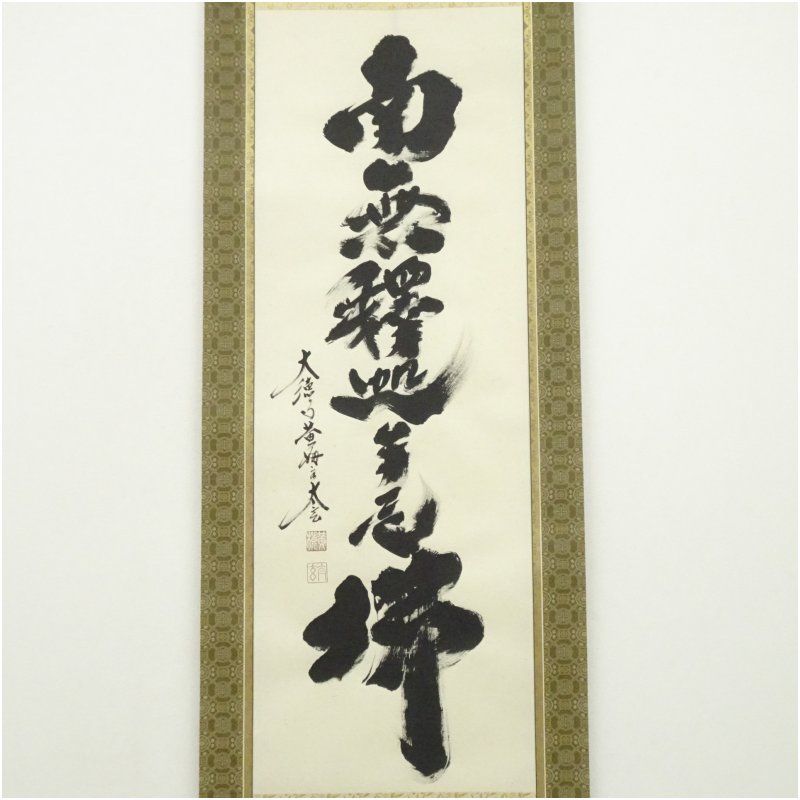 南無釋迦牟尼佛
大徳寺黄梅太玄